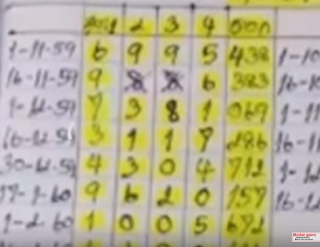 2 3 4
1-11-59 6 9 9 5 438 1-10
16-11-59 9 8 8 6 383 16-10
1-12-59 7 3 8 1 069 1-11
16-12-59 3 1 1 7 286 16-11
30-12-59 4 3 0 4 712 1-12
17-1-60 9 6 2 0 157 16-12
1-2-60 1 0 0 5 672